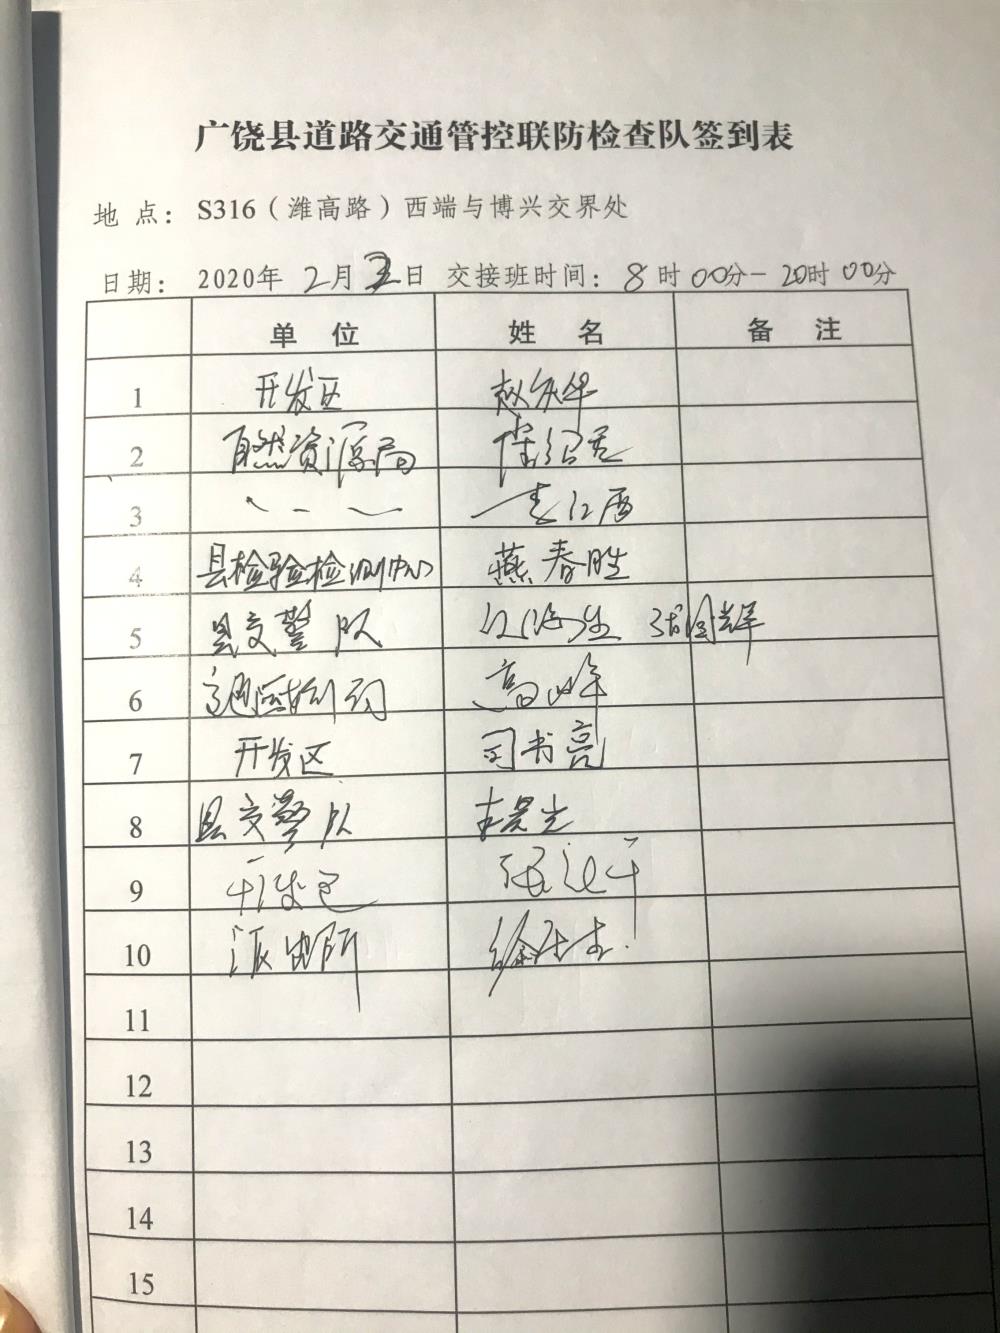 广饶县道路交通管控联防检查队签到表
地 点： S316（潍高路）西端与博兴交界处
日期： 2020年 2月 日 交接班时间：8时00分－20时00分
单 位 姓 名 备 注
1 开发区 赵庆华
2 自然资源局
3
4 县检验检测中心 燕春胜
5 县交警队 张国辉
6 高峰
7 开发区 司书亮
8 县交警队
9 开发区
10 派出所
11
12
13
14
15